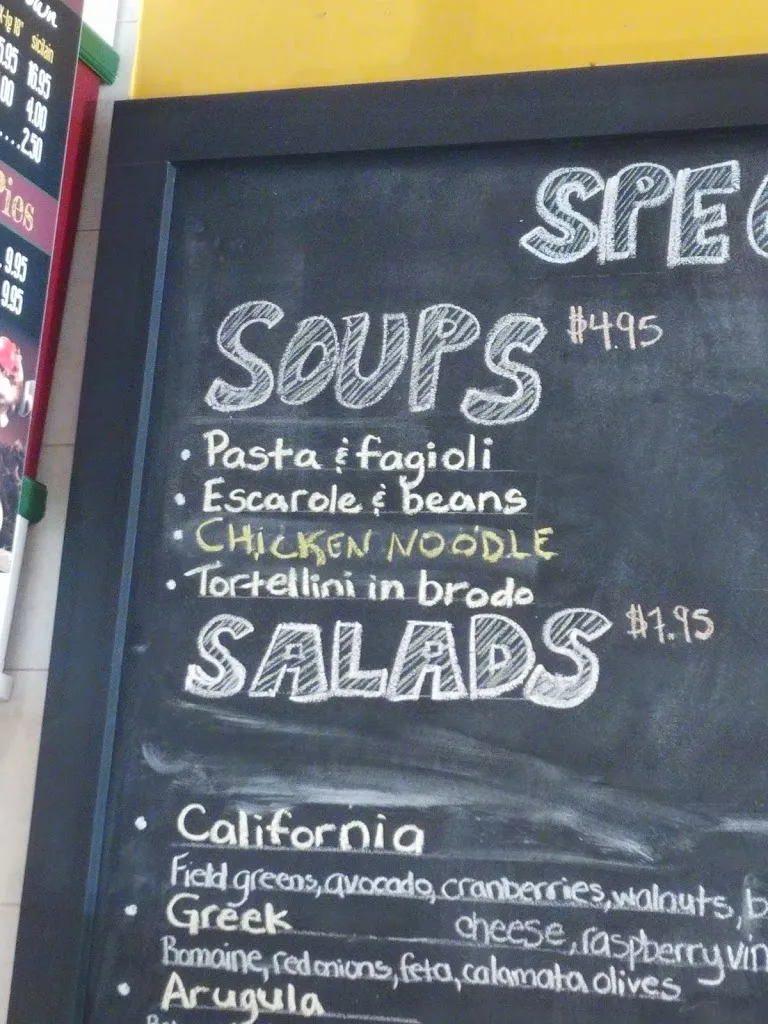 18" sicilain
16.95
4.00
....2.50
Pies
. 9.95
9.95
SPE
SOUPS $4.95
• Pasta & fagioli
• Escarole & beans
• CHICKEN NOODLE
• Tortellini in brodo
SALADS $7.95
• California
Field greens, avocado, cranberries, walnuts, b
cheese, raspberry vin
• Greek
Romaine, red onions, feta, calamata olives
• Arugula